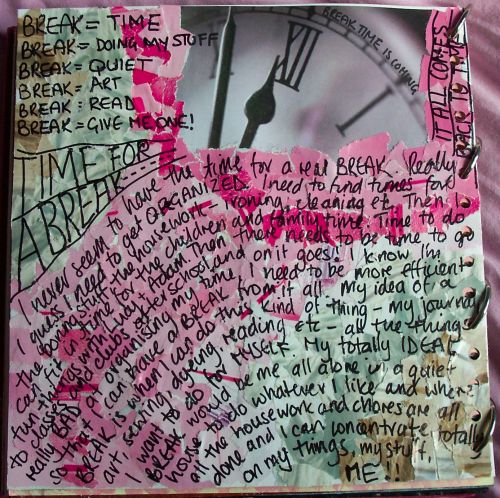 BREAK = TIME
BREAK = DOING MY STUFF
BREAK = QUIET
BREAK = ART
BREAK = READ
BREAK = GIVE ME ONE!
BREAK TIME IS COMING
XII
IT ALL COMES
BACK TO TIME
TIME FOR
A BREAK
I never seem to have the time for a real BREAK. Really
I guess I need to get ORGANIZED. I need to find times for
the boring stuff the housework - ironing, cleaning etc. Then I
can fit in time for the children and family time. Time to do
fun things with Adam. Then there needs to be time to go
to classes and clubs after school and on it goes!! I know I'm
really BAD at organising my time. I need to be more efficient
so that I can have a BREAK from it all - my idea of a
BREAK is when I can do this kind of thing - my journal
art, sewing, dyeing, reading etc - all the things
I want to do for MYSELF. My totally IDEAL
BREAK would be me all alone in a quiet
house to do whatever I like and where
all the housework and chores are all
done and I can concentrate totally
on my things, my stuff,
ME!!